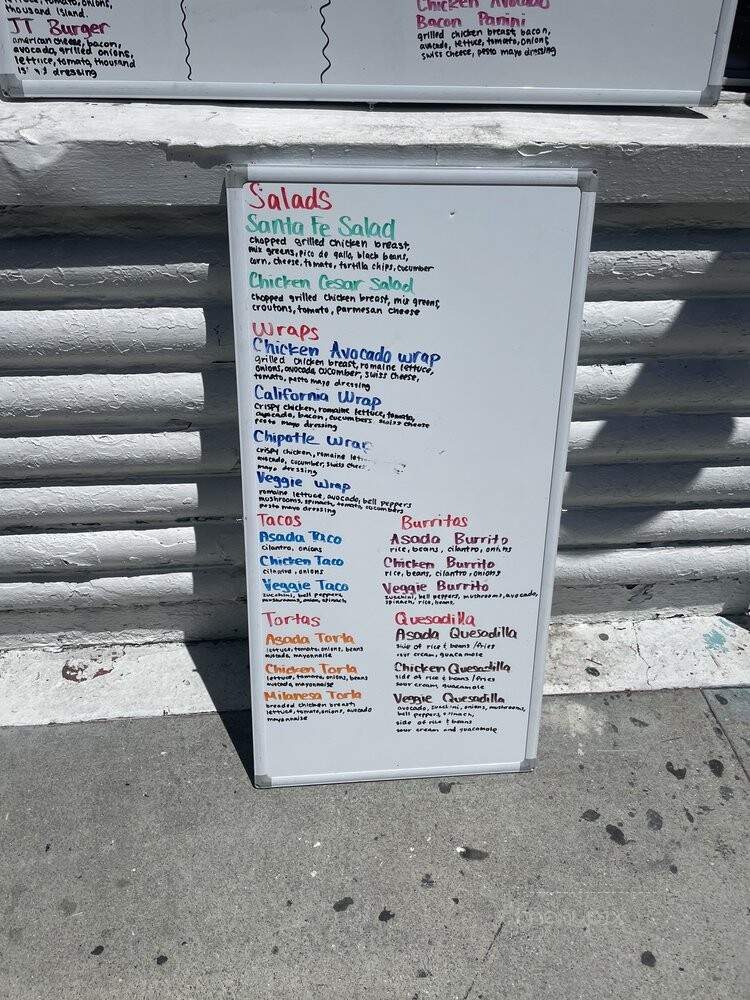 thousand island.
JT Burger
american cheese, bacon,
avocado, grilled onions,
lettuce, tomato, thousand
dressing
Chicken Avocado
Bacon Panini
grilled chicken breast, bacon,
avocado, lettuce, tomato, onions
swiss cheese, pesto mayo dressing
Salads
Santa Fe Salad
chopped grilled chicken breast,
mix greens, pico de gallo, black beans,
corn, cheese, tomato, tortilla chips, cucumber
Chicken Cesar Salad
chopped grilled chicken breast, mix greens,
croutons, tomato, parmesan cheese
Wraps
Chicken Avocado wrap
grilled chicken breast, romaine lettuce,
onions, avocado, cucomber, swiss cheese,
tomato, pesto mayo dressing
California Wrap
crispy chicken, romaine lettuce, tomato,
avocado, bacon, cucumbers, swiss cheese
pesto mayo dressing
Chipotle Wrap
crispy chicken, romaine
avocado, cucumber, swiss
mayo dressing
Veggie Wrap
romaine lettuce, avocado, bell peppers
mushrooms, spinach, tomato, cucumbers
pesto mayo dressing
Tacos
Asada Taco
cilantro, onions
Chicken Taco
cilantro, onions
Veggie Taco
zucchini, bell peppers
mushrooms, onion, spinach
Burritos
Asada Burrito
rice, beans, cilantro, onions
Chicken Burrito
rice, beans, cilantro, onions
Veggie Burrito
zucchini, bell peppers, mushrooms, avocado,
spinach, rice, beans,
Tortas
Asada Torta
lettuce, tomato, onions, beans
avocado, mayonnaise
Chicken Torta
lettuce, tomato, onions, beans
avocado, mayonnaise
Milanesa Torta
breaded chicken breast
lettuce, tomato, onions, avocado
mayonnaise
Quesadilla
Asada Quesadilla
side of rice & beans /fries
sour cream, guacamole
Chicken Quesadilla
side of rice & beans /fries
sour cream guacamole
Veggie Quesadilla
avocado, zucchini, onions, mushrooms,
bell peppers, spinach,
side of rice & beans
sour cream and guacamole